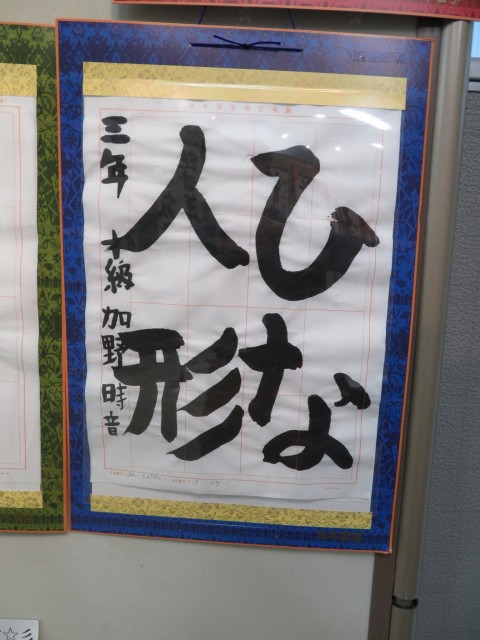 ひな
人形
三年 十級 加野時音